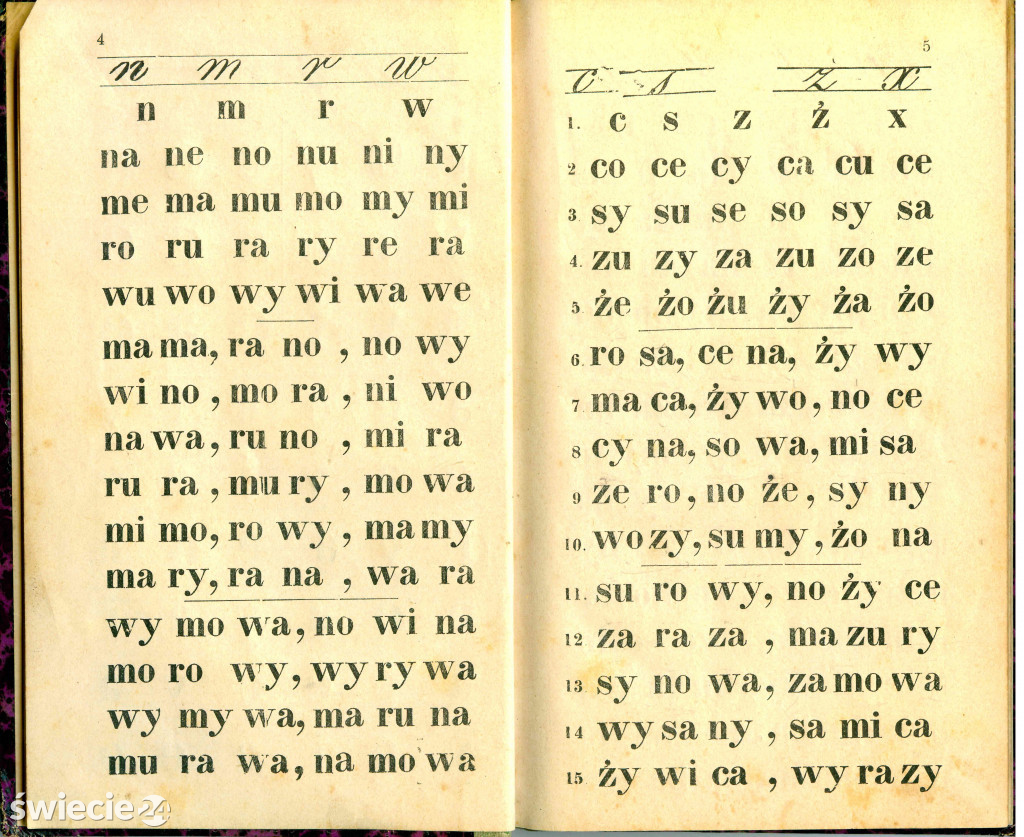 4
n m r w
n m r w
na ne no nu ni ny
me ma mu mo my mi
ro ru ra ry re ra
wu wo wy wi wa we
ma ma, ra no , no wy
wi no , mo ra , ni wo
na wa, ru no , mi ra
ru ra , mu ry , mo wa
mi mo, ro wy , ma my
ma ry, ra na , wa ra
wy mo wa, no wi na
mo ro wy, wy ry wa
wy my wa, ma ru na
mu ra wa, na mo wa
5
c s ż x
1. c s z ż x
2 co ce cy ca cu ce
3 sy su se so sy sa
4. zu zy za zu zo ze
5 że żo żu ży ża żo
6. ro sa, ce na, ży wy
7 ma ca, ży wo, no ce
8 cy na, so wa, mi sa
9 że ro, no że, sy ny
10. wo zy, su my, żo na
11. su ro wy, no ży ce
12 za ra za , ma zu ry
13 sy no wa, za mo wa
14 wy sa ny , sa mi ca
15 ży wi ca , wy ra zy
świecie24